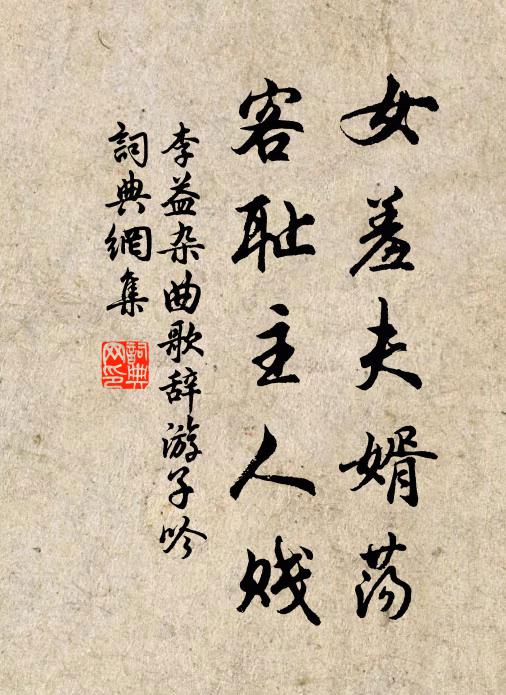 女羞夫婿荡
客耻主人贱
李益杂曲歌辞游子吟
詞典網集
詞典
网印